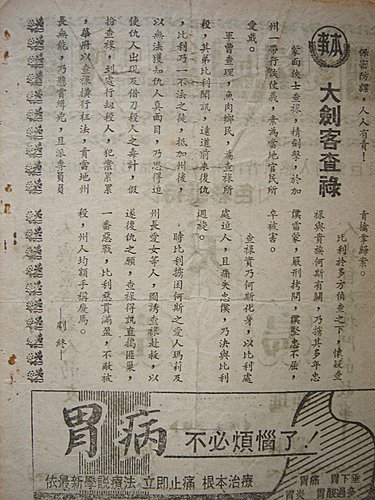 保密防諜，人人有責！
本事
大劍客查祿
蒙面俠士查祿，精劍擊，於加
州一帶行俠仗義，素為當地官民所
愛戴。
軍曹查理，魚肉鄉民，為查祿所
殺，其弟比利聞訊，遠道前來復仇
，比利乃一不法之徒，抵加州後，
以無法獲知仇人真面目，乃思得迫
使仇人出現及借刀殺人之毒計，假
扮查祿，到處行劫殺人，犯案累累
，舉州以查祿橫行枉法，責當地州
長無能，乃懸賞緝兇，且派專員
責擒拿歸案。
比利於多方偵查之下，懷疑查
祿與貴族何斯有關，乃擄其多年忠
僕雷蒙，嚴刑拷問，僕堅忠不屈，
卒被害。
查祿實乃何斯化身，以比利處
處迫人，且痛失忠僕，乃決與比利
週旋。
時比利擄因何斯之愛人瑪莉及
州長愛女等人，圖誘查祿赴救，以
遂復仇之願，查祿得訊直搗匪巢，
一番惡戰，比利惡貫滿盈，不敵被
殺，州人均額手稱慶焉。
—劇終—
胃病 不必煩惱了！
依最新學說療法，立即止痛 根本治療
胃痛 胃下垂
胃炎 胃酸過多